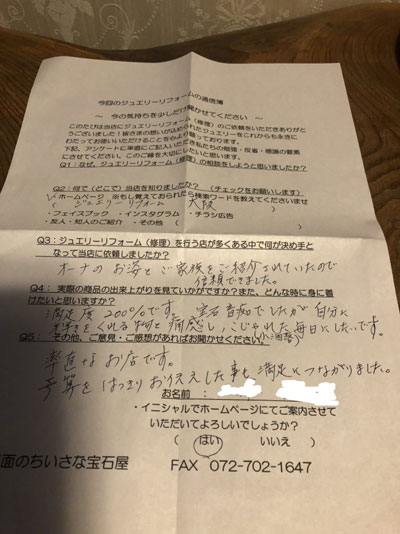 今回のジュエリーリフォームの通信簿
～ 今の気持ちを少しだけ聞かせてください ～
このたびは当店にジュエリーリフォーム（修理）のご依頼をいただきありが
とうございました！皆さまの想いが込められたジュエリーをこれからも永きに
わたってお使いいただけることを心より願っております。
下記、アンケートに率直にご記入いただき私たちの勉強・反省・感謝の要素
にさせてください。このご縁を大切にしたいと思います。
Q1：なぜ、ジュエリーリフォーム（修理）の相談をしようと思いましたか？
Q2：何で（どこで）当店を知りましたか？　（チェックをお願いします）
ホームページ　※もし覚えておられたら検索ワードを教えてくださいませ
（ジュエリーリフォーム　大阪　）
・フェイスブック　・インスタグラム　・チラシ広告
・友人・知人のご紹介　・その他（　）
Q3：ジュエリーリフォーム（修理）を行う店が多くある中で何が決め手と
なって当店に依頼しましたか？
オーナーのお姿とご家族をご紹介されていたので
信頼できました。
Q4：　実際の商品の出来上がりを見ていかがですか？また、どんな時に身に着
けたいと思いますか？
満足度200%です。宝石音痴でしたが自分に
をくれる物と痛感し、こじゃれた毎日にしたいです。
Q5：　その他、ご意見・ご感想があればお聞かせください。
率直なお店です。
予算をはっきりお伝えした事も満足につながりました。
お名前：
・イニシャルでホームページにてご案内させて
いただいてよろしいでしょうか？
（　はい　　いいえ　）
面のちいさな宝石屋　　FAX　072-702-1647